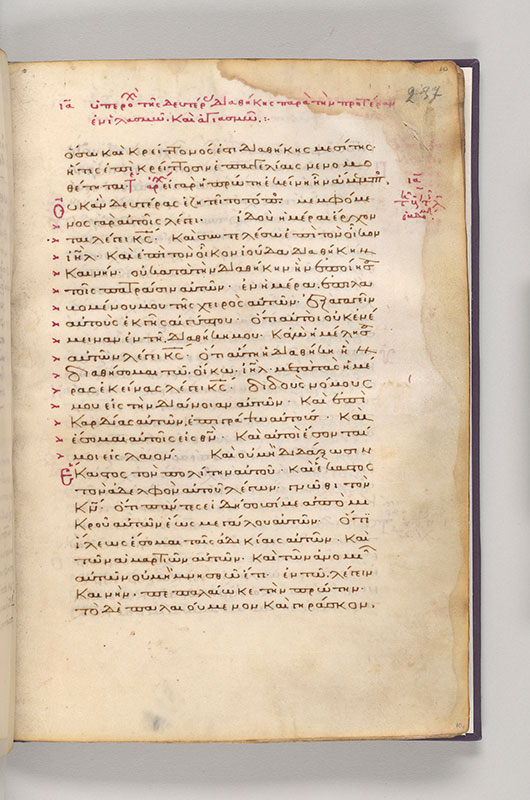 ια ὑπεροχὴ τῆς δευτέρας διαθήκης παρὰ τὴν προτέραν
ἐν ἱλασμῶ καὶ ἁγιασμῶ:
237
ὅσω καὶ κρείττονος ἐστὶ διαθήκης μεσίτης·
ἥτις ἐπὶ κρείττοσιν ἐπαγγελίαις νενομο
θέτηται· εἰ γὰρ ἡ πρώτη ἐκείνη ἦν ἄμεμπτος,
οὐκ ἂν δευτέρας ἐζητεῖτο τόπος· μεμφόμε
νος γὰρ αὐτοῖς λέγει· ἰδοὺ ἡμέραι ἔρχον
ται λέγει κς· καὶ συντελέσω ἐπὶ τὸν οἶκον
ιηλ· καὶ ἐπὶ τὸν οἶκον ἰούδα διαθήκην
καινήν· οὐ κατὰ τὴν διαθήκην ἣν ἐποίησα
τοῖς πατράσιν αὐτῶν· ἐν ἡμέρα ἐπιλα
βομένου μου τῆς χειρὸς αὐτῶν· ἐξαγαγεῖν
αὐτοὺς ἐκ γῆς αἰγύπτου· ὅτι αὐτοὶ οὐκ ἐνέ
μειναν ἐν τῆ διαθήκη μου· κἀγὼ ἠμέλησα
αὐτῶν λέγει κς· ὅτι αὕτη ἡ διαθήκη ἣν
διαθήσομαι τῶ οἴκω ιηλ· μετὰ τὰς ἡμέ
ρας ἐκείνας λέγει κς· διδοὺς νόμους
μου εἰς τὴν διάνοιαν αὐτῶν· καὶ ἐπὶ
καρδίας αὐτῶν, ἐπιγράψω αὐτούς· καὶ
ἔσομαι αὐτοῖς εἰς θν· καὶ αὐτοὶ ἔσονταί
μοι εἰς λαόν· καὶ οὐ μὴ διδάξωσιν
ἕκαστος τὸν πολίτην αὐτοῦ· καὶ ἕκαστος
τὸν ἀδελφὸν αὐτοῦ λέγων· γνῶθι τὸν
κν· ὅτι πάντες εἰδήσουσί με ἀπὸ μι
κροῦ αὐτῶν ἕως μεγάλου αὐτῶν· ὅτι
ἵλεως ἔσομαι ταῖς ἀδικίαις αὐτῶν· καὶ
τῶν ἁμαρτιῶν αὐτῶν· καὶ τῶν ἀνομιῶν
αὐτῶν οὐ μὴ μνησθῶ ἔτι· ἐν τῶ λέγειν
καινήν, πεπαλαίωκε τὴν πρώτην·
τὸ δὲ παλαιούμενον καὶ γηράσκον,